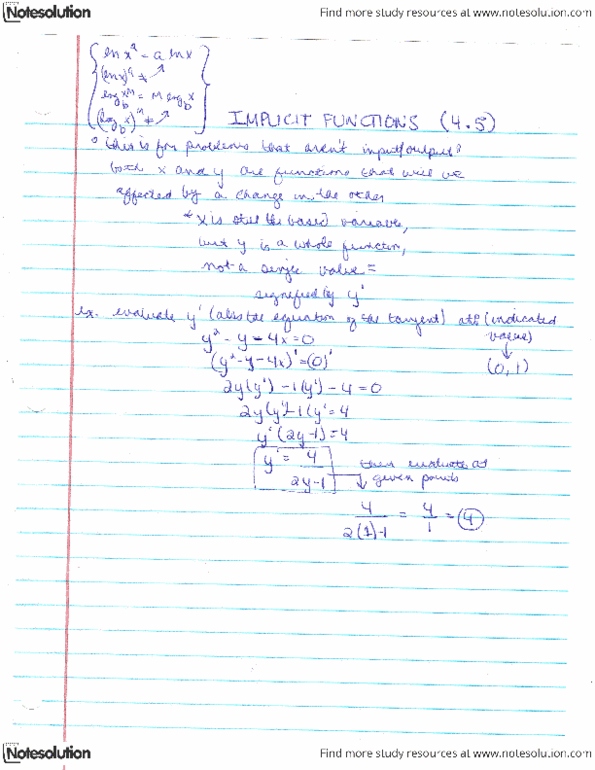 Notesolution
Find more study resources at www.notesolution.com
ln x^a = a ln x
(ln x)^a ≠
log_b x^M = M log_b x
(log_b x)^M ≠
IMPLICIT FUNCTIONS (4.5)
° this is for problems that aren't input/output:
both x and y are functions that will be
affected by a change in the other
* x is still the based variable,
but y is a whole function,
not a single value =
signified by y'
ex. evaluate y' (also the equation of the tangent) at: (indicated value)
y² - y - 4x = 0
(0,1)
(y² - y - 4x)' = (0)'
2y(y') - 1(y') - 4 = 0
2y(y') - 1(y' = 4
y'(2y-1) = 4
y' = 4/2y-1
then evaluate at
given points
4/2(1)-1 = 4/1 = 4
Notesolution
Find more study resources at www.notesolution.com